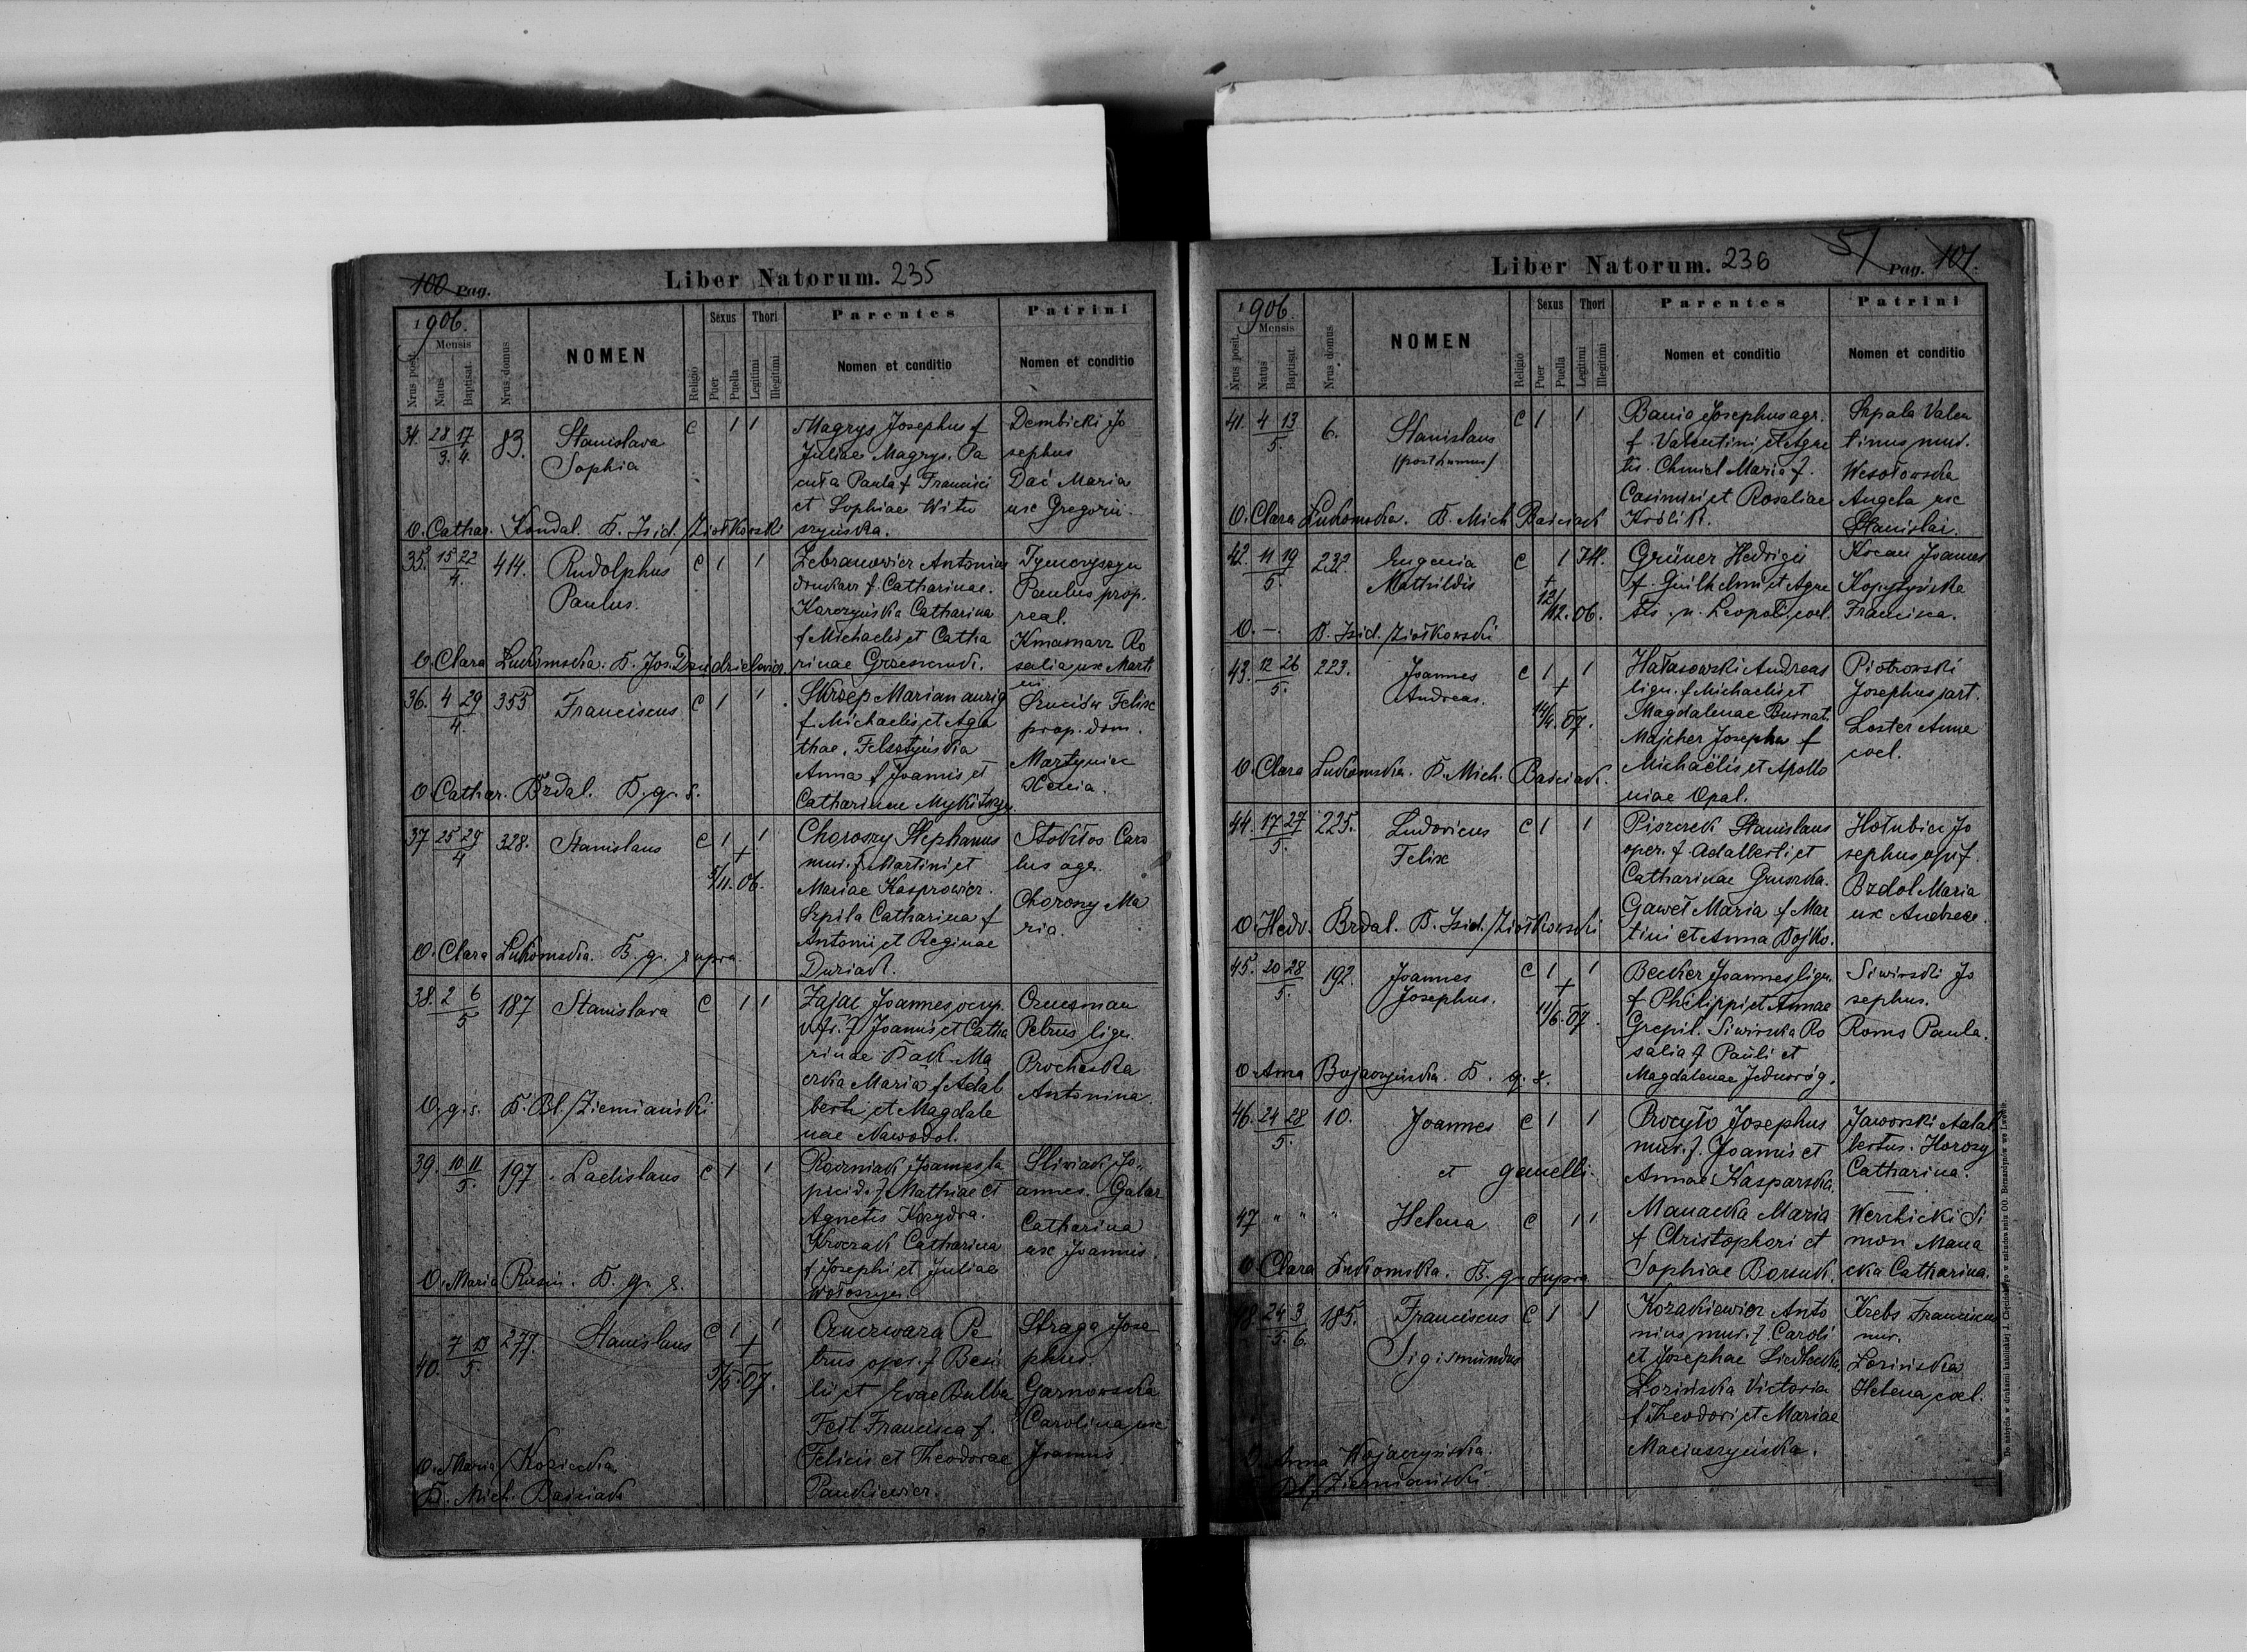 100 Pag.
Liber Natorum. 235
1906.
Nrus posit.
Mensis
Natus
Baptisat.
Nrus domus
NOMEN
Religio
Sexus
Puer
Puella
Thori
Legitimi
Illegitimi
Parentes
Nomen et conditio
Patrini
Nomen et conditio
34. 28/3. 17/4. 83. Stanislava
Sophia
C 1 1
Magrys Josephus f
Juliae Magrys. Pa
cuła Paula f Francisci
et Sophiae Wito
szyńska.
Dembicki Jo
sephus
Dać Maria
ux Gregorii.
O. Cathar. Kondal. B. Isid. Ziołkowski
35. 15 22/4. 414. Rudolphus
Paulus.
C 1 1
Zebranowicz Antonius
drukarz f. Catharinae.
Karczyńska Catharina
f Michaelis et Catha
rinae Grzeszczuk.
Paulus prop.
real.
Kmamarz Ro
salia ux Marti
ni
O. Clara Lukomska. B. Jos. Dziedzielewicz
36. 4 29/4. 355 Franciscus
C 1 1
Skrzep Marian aurig
f Michaelis et Aga
thae. Felsztyńska
Anna f Joannis et
Catharinae
Szuciów Felix
prop. dom.
Martyniec
Xenia.
O. Cathar. Bzdal. B. q. s.
37 25 29/4 328. Stanislaus
C 1 1
+
5/11. 06.
Choroszy Stephanus
mur. f Martini et
Mariae Kasprowicz.
Szpila Catharina f
Antonii et Reginae
Duziak.
Stokłos Caro
lus agr.
Choroszy Ma
ria.
O. Clara Lukomska. B. q. supra.
38. 2 6/5 187 Stanislava
C 1 1
Zając Joannes
f Joannis et Catha
rinae Bąk. Mą
czka Maria f Adal
berti et Magdale
nae Nawodol.
Czuczman
Petrus lign.
Procheska
Antonina.
O. q. s. B. Bl. Ziemiański
39. 10 11/5. 197 Ladislaus
C 1 1
Woźniak Joannes la
picid. f Mathiae et
Agnetis Kozydra.
Kroczak Catharina
f Josephi et Juliae
Wołoszyn.
Śliwiak Jo
annes. Galar
Catharina
ux Joannis.
O. Maria Rusin. B. q. s.
40. 7 13/5. 277. Stanislaus
C 1 1
+
5/5. 07.
Czuczwara Pe
trus oper. f Basi
lii et Evae Bulba
Fedl Francisca f.
Felicis et Theodorae
Pankiewicz.
Straga Jose
phus.
Garnowska
Carolina ux
Joannis.
O. Maria Kosiecka
B. Mich. Baściak
Liber Natorum. 236
51
Pag. 101.
1906.
Nrus posit.
Mensis
Natus
Baptisat.
Nrus domus
NOMEN
Religio
Sexus
Puer
Puella
Thori
Legitimi
Illegitimi
Parentes
Nomen et conditio
Patrini
Nomen et conditio
41. 4 13/5. 6. Stanislaus
(posthumus)
C 1 1
Bania Josephus agr.
f Valentini et Agne
tis. Chmiel Maria f.
Casimiri et Rosaliae
Królik.
Szpala Valen
tinus mur.
Wesołowska
Angela ux
Stanislai.
O. Clara Lukomska. B. Mich Baściak
42. 11 19/5. 232. Eugenia
Mathildis
C 1 Ill.
+
12/12. 06.
Grüner Hedvigis
f. Guilhelmi et Agne
tis n. Leopold. coel.
Kocan Joannes
Kopystyńska
Francisca.
O. –. B. Isid. Ziołkowski
43. 12 26/5. 223. Joannes
Andreas.
C 1 1
+
14/4. 07.
Hałasowski Andreas
lign. f Michaelis et
Magdalenae Burnat.
Majcher Josepha f
Michaëlis et Apollo
niae Opal.
Piotrowski
Josephus sart.
Lester Anna
coel.
O. Clara Lukomska. B. Mich. Baściak.
44. 17 27/5. 225. Ludovicus
Felix
C 1 1
Piszczek Stanislaus
oper. f Adalberti et
Catharinae Gruszka.
Gaweł Maria f Mar
tini et Anna Bojko.
Hołubiec Jo
sephus opif.
Bzdol Maria
ux Andreae.
O. Hedv. Bzdal. B. Isid. Ziołkowski
45. 20 28/5. 192. Joannes
Josephus.
C 1 1
+
11/6. 07.
Becker Joannes lign.
f Philippi et Annae
Grepil. Siwirska Ro
salia f Pauli et
Magdalenae Jednoróg.
Siwirski Jo
sephus.
Roms Paula.
O. Anna Bojaczyńska. B. q. s.
46. 24 28/5. 10. Joannes
C 1 1
et gemelli.
47 " " " Helena C 1 1
Procyło Josephus
mur. f. Joannis et
Annae Kasparska.
Manacka Maria
f Christophori et
Sophiae Borsuk.
Jaworski Adal
bertus. Horoszy
Catharina.
Werchicki Si
mon Mana
cka Catharina.
O. Clara Lukomska. B. q. supra
48. 24/5. 3/6. 185. Franciscus
Sigismundus
C 1 1
Kozakiewicz Anto
nius mur. f. Caroli
et Josephae Siedlecka.
Lozińska Victoria
f Theodori et Mariae
Maciuszyńska.
Krebs Franciscus
mur.
Lozińska
Helena coel.
Anna Wojaczyńska.
Bl. Ziemiański
Do nabycia w drukarni katolickiej J. Chęcińskiego w zabudowaniu OO. Bernardynów we Lwowie.